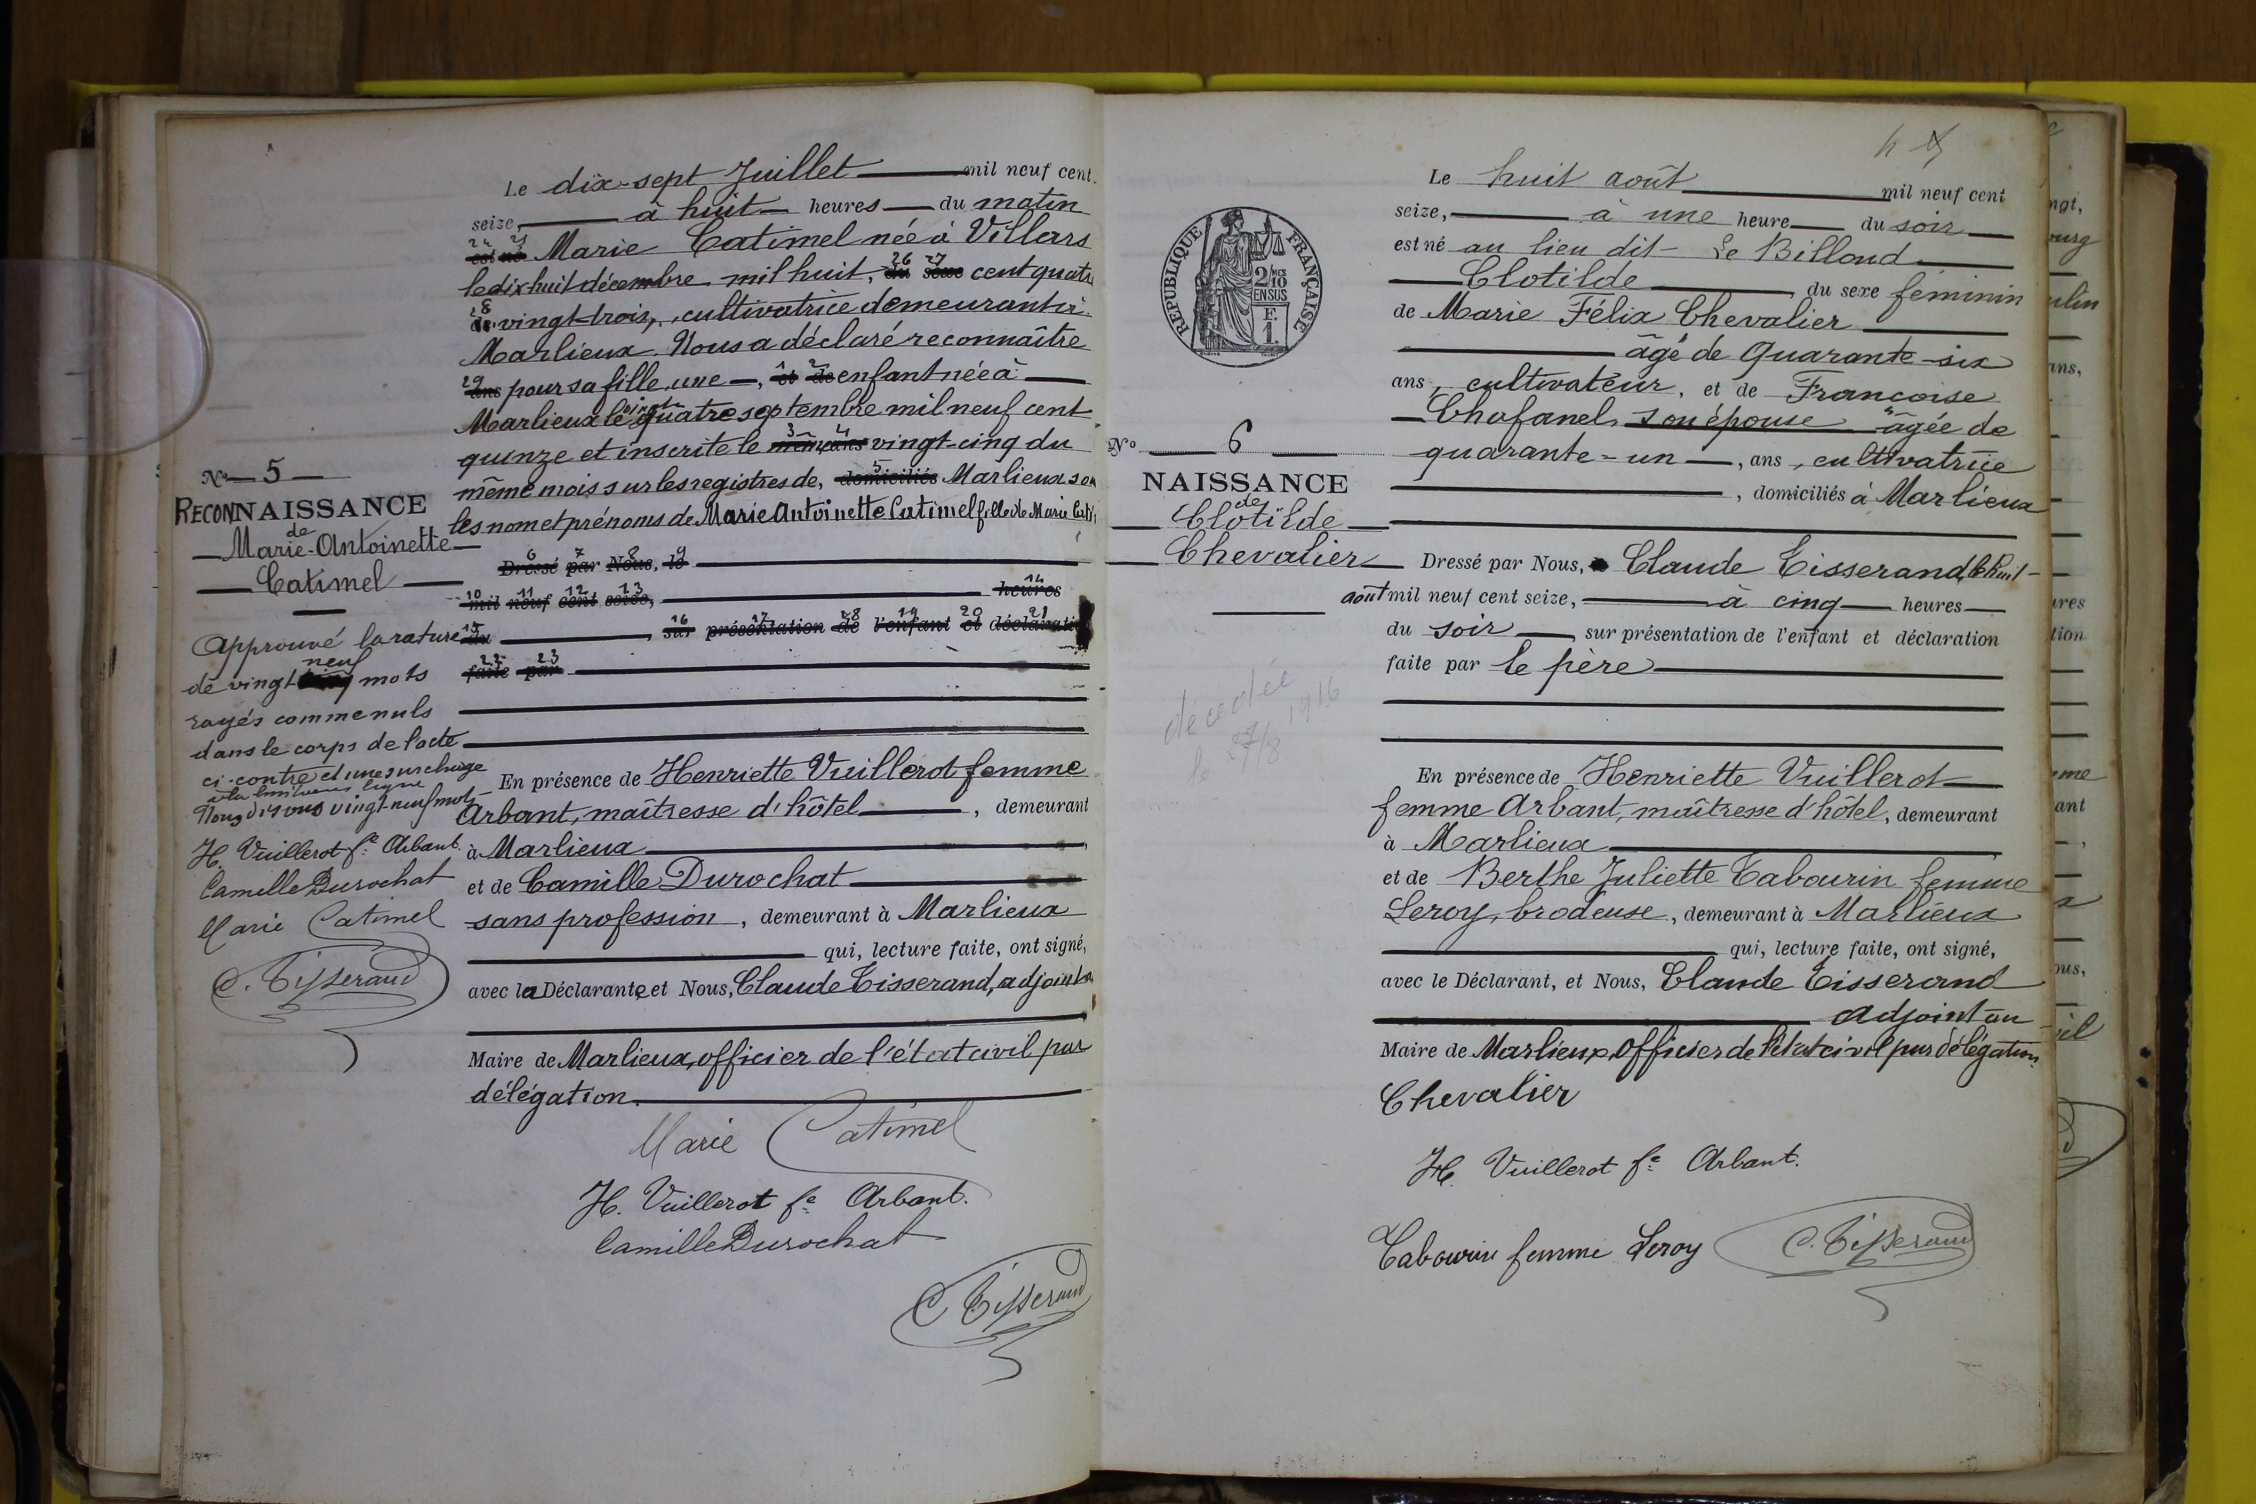 Le dix-sept Juillet mil neuf cent
seize, à huit heures du matin
24 25
est né Marie Catimel née à Villars
26 27
le dix huit décembre mil huit, du sexe cent quatre
28
de vingt-trois, cultivatrice demeurant à
Marlieux. Nous a déclaré reconnaître
29 1 2
ans pour sa fille, une, et de enfant née à
vingt
Marlieux le quatre septembre mil neuf cent
3 4
quinze et inscrite le même ans vingt-cinq du
5
même mois sur les registres de, domiciliés Marlieux sous
les nom et prénoms de Marie Antoinette Catimel fille de Marie
6 7 8 9
Dressé par Nous, le
10 11 12 13 14
mil neuf cent seize, heures
15 16 17 18 19 20 21
du, sur présentation de l'enfant et déclaration
22 23
faite par
En présence de Henriette Vuillerot femme
Arbant, maîtresse d'hôtel, demeurant
à Marlieux
et de Camille Durochat
sans profession, demeurant à Marlieux
qui, lecture faite, ont signé,
avec la Déclarante, et Nous, Claude Tisserand, adjoint au
Maire de Marlieux, officier de l'état civil par
délégation.
Marie Catimel
H. Vuillerot fe Arbant.
Camille Durochat
C. Tisserand
No 5
RECONNAISSANCE
de
Marie-Antoinette
Catimel
Approuvé la rature
neuf
de vingt mots
rayés comme nuls
dans le corps de l'acte
ci-contre et une surcharge
à la ligne
Nous disons vingt-neuf mots
H. Vuillerot fe Arbant.
Camille Durochat
Marie Catimel
C. Tisserand
4
RÉPUBLIQUE FRANÇAISE
2/10
EN SUS
F.
1.
No 6
NAISSANCE
de
Clotilde
Chevalier
décédée
le 27/8 1916
Le huit août mil neuf cent
seize, à une heure du soir
est né au lieu dit Le Billoud
Clotilde du sexe féminin
de Marie Félix Chevalier
âgé de quarante-six
ans, cultivateur, et de Françoise
Chafanel, son épouse âgée de
quarante-un, ans, cultivatrice
, domiciliés à Marlieux
Dressé par Nous, Claude Tisserand, le huit
août mil neuf cent seize, à cinq heures
du soir, sur présentation de l'enfant et déclaration
faite par le père
En présence de Henriette Vuillerot
femme Arbant, maîtresse d'hôtel, demeurant
à Marlieux
et de Berthe Juliette Tabourin femme
Leroy, brodeuse, demeurant à Marlieux
qui, lecture faite, ont signé,
avec le Déclarant, et Nous, Claude Tisserand
adjoint au
Maire de Marlieux, officier de l'état civil par délégation.
Chevalier
H. Vuillerot fe Arbant.
Tabourin femme Leroy
C. Tisserand